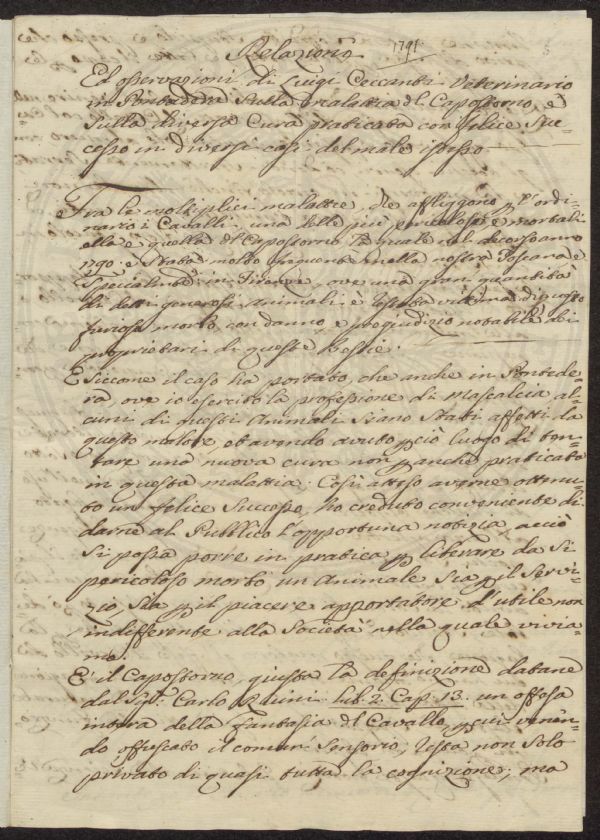 Relazione 1791
Ed osservazioni di Luigi Ceccanti Veterinario
in Pontadera sulla malattia del Capostorno, e
sulla diversa cura praticata con felice suc=
cesso in diversi casi del male istesso
Fra le moltiplici malattie, che affliggono p l'ordi=
nario i Cavalli, una delle più pericolose, e mortali
ella è quella del Capostorno la quale nel decorso anno
1790. è stata molto frequente nella nostra Toscana e
specialmte in Firenze, ove una gran quantità
di detti generosi animali è restata vittima di questo
furioso morbo, con danno, e pregiudizio notabile dei
proprietari di queste Bestie.
E siccome il caso ha portato, che anche in Pontede=
ra ove io esercito la professione di Mascalcia al=
cuni di questi Animali siano stati affetti da
questo malore, ed avendo avuto p ciò luogo di ten=
tare una nuova cura non p anche praticata
in questa malattia. Così atteso averne ottenu=
to un felice successo, ho creduto conveniente di
darne al Pubblico l'opportuna notizia, acciò
si possa porre in pratica p liberare da sì
pericoloso morbo un Animale sia p il servi=
zio, sia p il piacere apportatore d'utile non
indifferente alla Società nella quale vivia=
mo.
E' il Capostorno, giusta la definizione datane
dal Sigr. Carlo Ruini lib. 2. Cap. 13. un offesa
intera della Fantasia del Cavallo, p cui venen=
do offuscato il comun' sensorio, resta non solo
privato di quasi tutta la cognizione; ma